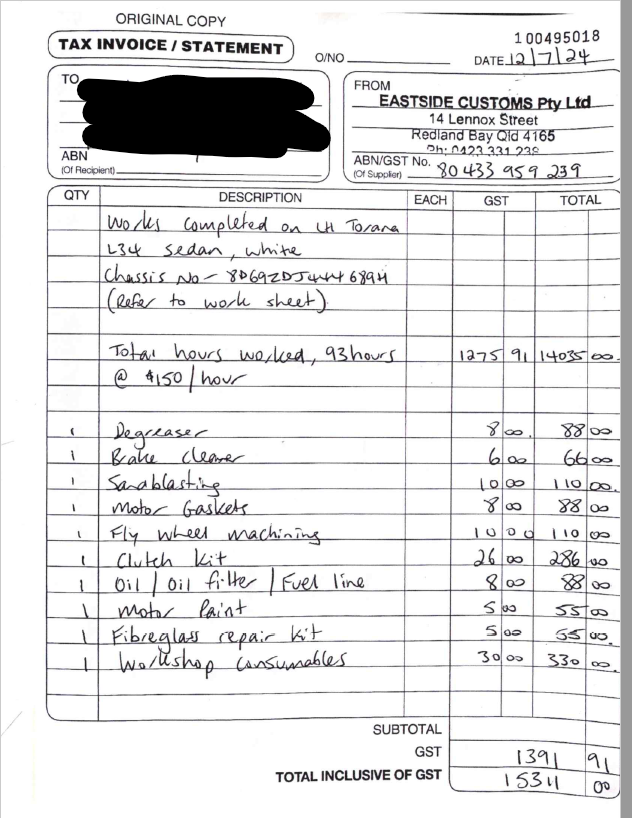 ORIGINAL COPY
TAX INVOICE / STATEMENT
100495018
O/NO. DATE 12/7/24
TO
ABN
(Of Recipient)
FROM
EASTSIDE CUSTOMS Pty Ltd
14 Lennox Street
Redland Bay Qld 4165
Ph: 0423 331 239
ABN/GST No. 80 433 959 239
(Of Supplier)
QTY DESCRIPTION EACH GST TOTAL
Works completed on LH Torana
L34 sedan, white
Chassis No - 8D69ZDJ444689H
(Refer to work sheet)
Total hours worked, 93 hours 1275 91 14035 00
@ $150/hour
1 Degreaser 8 00. 88 00
1 Brake cleaner 6 00 66 00
1 Sandblasting 10 00 110 00.
1 Motor Gaskets 8 00 88 00
1 Fly wheel machining 10 00 110 00
1 Clutch kit 26 00 286 00
1 Oil / Oil filter / Fuel line 8 00 88 00
1 Motor Paint 5 00 55 00
1 Fibreglass repair kit 5 00 55 00.
1 Workshop consumables 30 00 330 00.
SUBTOTAL
GST 1391 91
TOTAL INCLUSIVE OF GST 15311 00